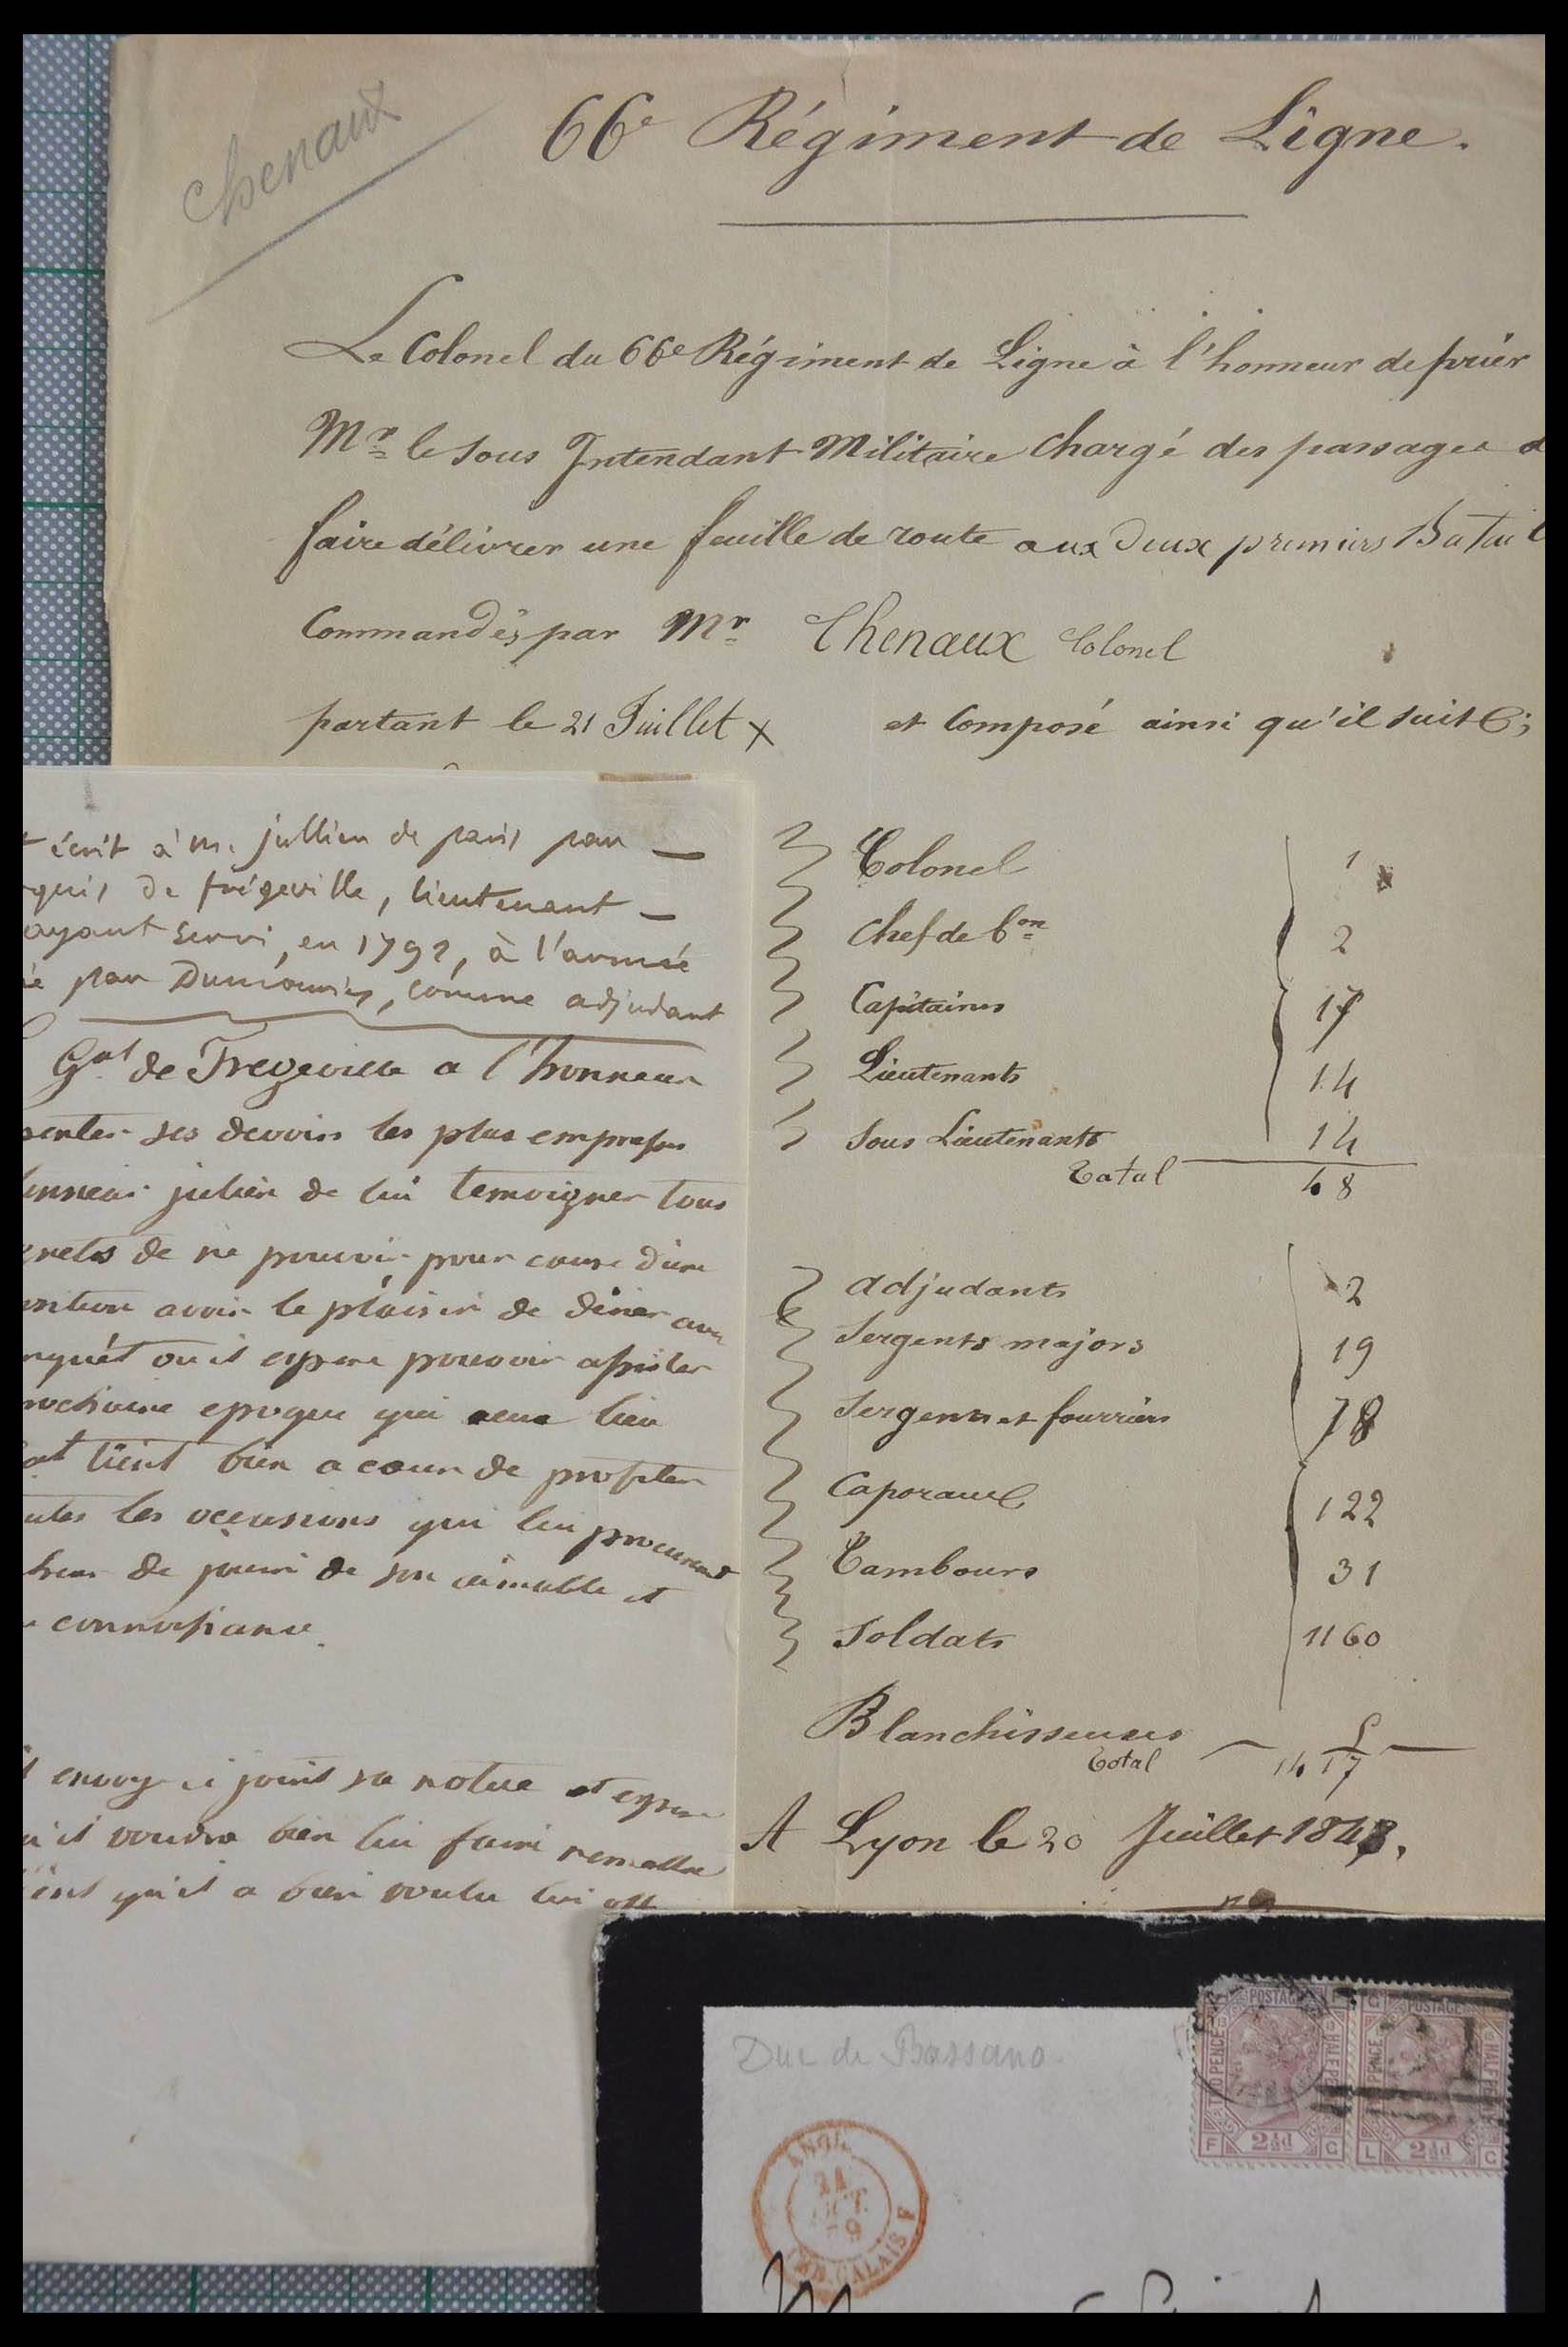 Chenaux
66e Régiment de Ligne.
Le Colonel du 66e Régiment de Ligne à l'honneur de prier
Mr le Sous Intendant Militaire Chargé des passages
faire délivrer une feuille de route aux deux premiers Batail
Commandés par Mr Chenaux Colonel
partant le 21 Juillet x et Composé ainsi qu'il suit
Colonel 1
Chef de bon 2
Capitaines 17
Lieutenants 14
Sous Lieutenants 14
Total 48
adjudants 2
Sergents majors 19
Sergents et fourriers 78
Caporaux 122
Tambours 31
Soldats 1160
Blanchisseuses 5
Total 1417
A Lyon le 20 Juillet 184
écrit à m. jullien de paris par
quis de frégeville, lieutenant
ayant servi, en 1792, à l'armée
par Dumouriez, comme adjudant
Gal de Fregeville a l'honneur
senter ses devoirs les plus empressés
julien de lui temoigner tous
grets de ne pouvoir pour cause d'une
sition avoir le plaisir de diner au
nquet ou il espere pouvoir assister
rochaine epoque qui aura lieu
tient bien a cœur de profiter
utes les occasions qui lui procurent
heur de jouir de son aimable et
connoissance.
envoy ci joint sa notice et espere
u'il voudra bien lui faire remettre
qu'il a bien voulu lui
Duc de Bassano
POSTAGE
TWO PENCE
HALF PE
F 2½d G
G POSTAGE
PENCE
HALF PE
L 2½d G
ANGL.
24
CALAIS